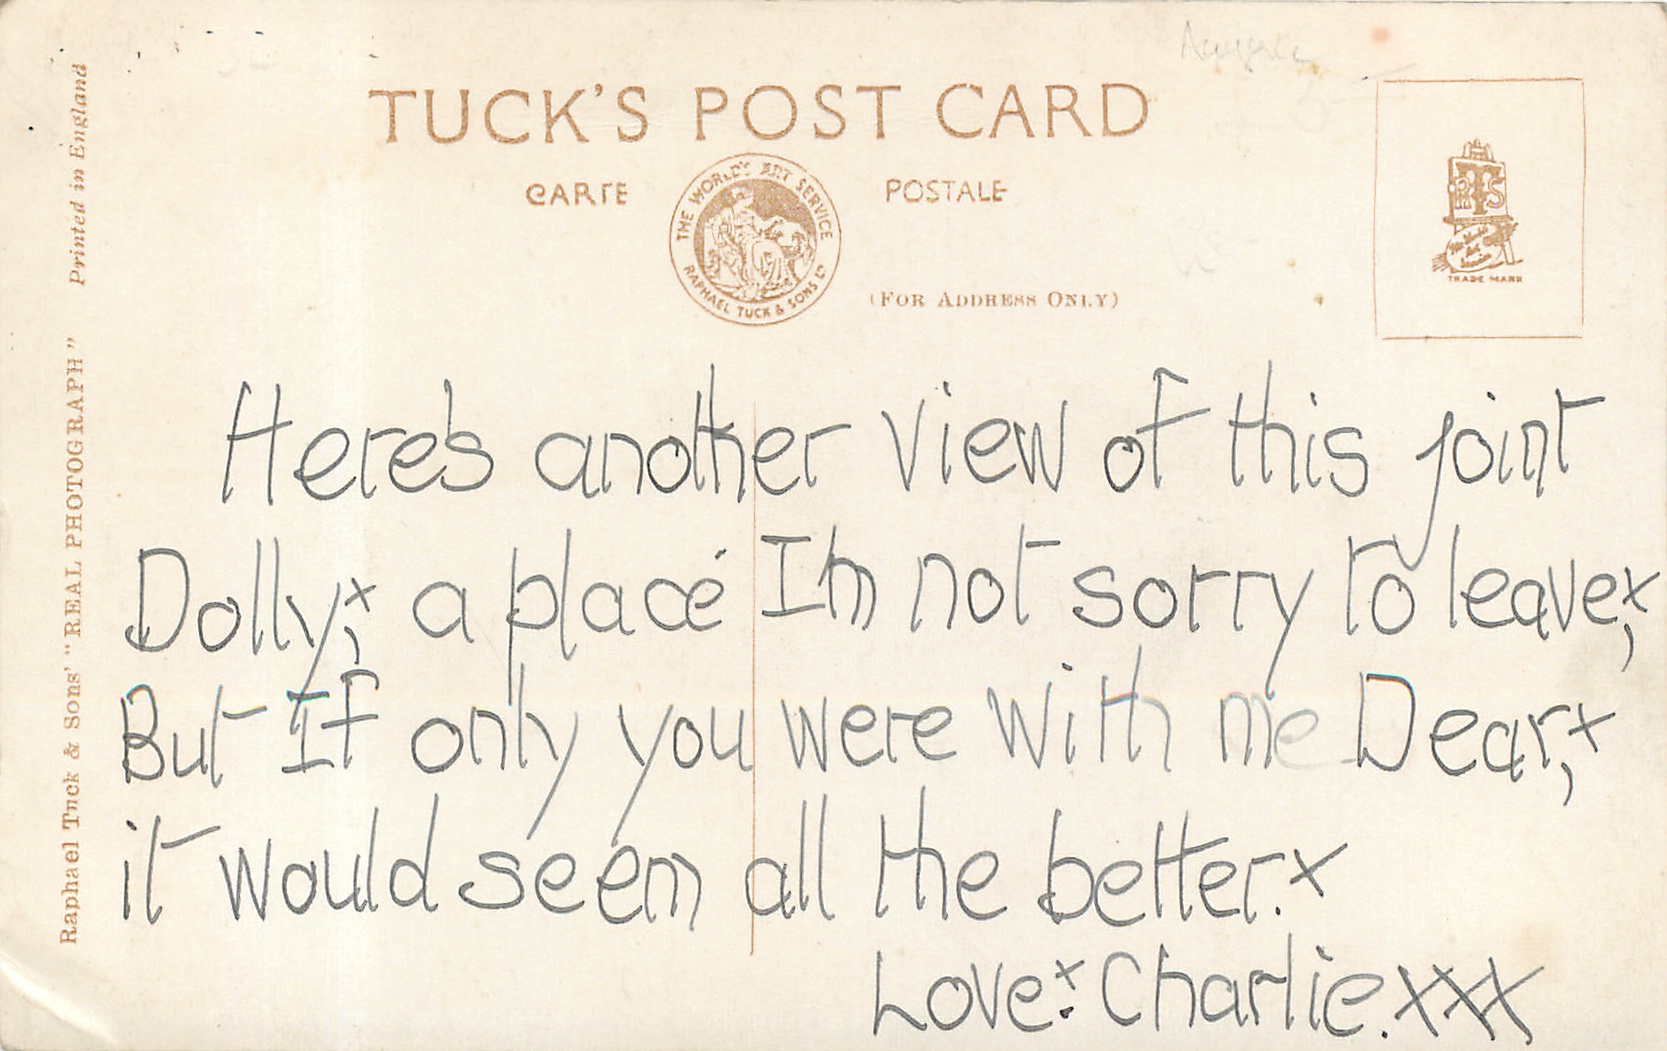 TUCK'S POST CARD
CARTE POSTALE
THE WORLD'S ART SERVICE
RAPHAEL TUCK & SONS LD
(FOR ADDRESS ONLY)
TRADE MARK
Raphael Tuck & Sons' "REAL PHOTOGRAPH" Printed in England
Here's another view of this joint
Dolly,x a place I'm not sorry to leave,x
But If only you were with me Dear,x
it would seem all the better.x
Love:x Charlie.xxx